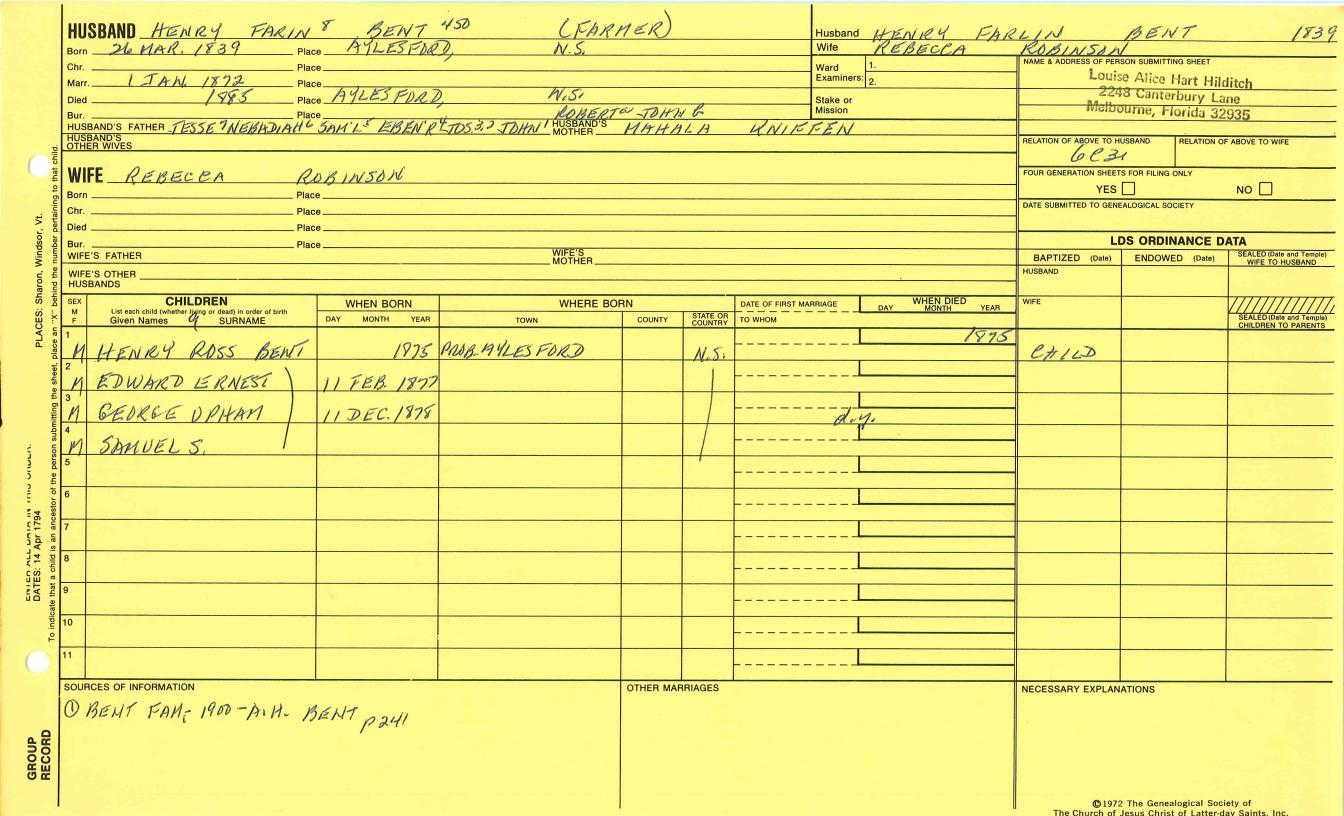 HUSBAND HENRY FARIN 8 BENT 450 (FARMER)
Born 26 MAR. 1839 Place AYLESFORD, N.S.
Chr. Place
Marr. 1 JAN. 1872 Place
Died 1885 Place AYLESFORD, N.S.
Bur. Place ROBERT JOHN
HUSBAND'S FATHER JESSE 7 NEBADIAH 6 SAM'L 5 EBEN'R 4 JOS. 3,2 JOHN 1 HUSBAND'S MOTHER MAHALA KNIFFEN
HUSBAND'S OTHER WIVES
Husband HENRY FARLIN BENT 1839
Wife REBECCA ROBINSON
Ward Examiners: 1.
2.
Stake or Mission
NAME & ADDRESS OF PERSON SUBMITTING SHEET
Louise Alice Hart Hilditch
2248 Canterbury Lane
Melbourne, Florida 32935
RELATION OF ABOVE TO HUSBAND RELATION OF ABOVE TO WIFE
6C3r
FOUR GENERATION SHEETS FOR FILING ONLY
YES NO
DATE SUBMITTED TO GENEALOGICAL SOCIETY
WIFE REBECCA ROBINSON
Born Place
Chr. Place
Died Place
Bur. Place
WIFE'S FATHER WIFE'S MOTHER
WIFE'S OTHER HUSBANDS
LDS ORDINANCE DATA
BAPTIZED (Date) ENDOWED (Date) SEALED (Date and Temple) WIFE TO HUSBAND
HUSBAND
WIFE
SEALED (Date and Temple) CHILDREN TO PARENTS
SEX M F CHILDREN WHEN BORN WHERE BORN DATE OF FIRST MARRIAGE WHEN DIED
List each child (whether living or dead) in order of birth
Given Names 9 SURNAME DAY MONTH YEAR TOWN COUNTY STATE OR COUNTRY TO WHOM DAY MONTH YEAR
1 M HENRY ROSS BENT 1875 PROB. AYLESFORD N.S. 1875 CHILD
2 M EDWARD ERNEST 11 FEB. 1877
3 M GEORGE UPHAM 11 DEC. 1878 d.y.
4 M SAMUEL S.
5
6
7
8
9
10
11
SOURCES OF INFORMATION
① BENT FAM- 1900 - A.H. BENT p241
OTHER MARRIAGES
NECESSARY EXPLANATIONS
©1972 The Genealogical Society of
The Church of Jesus Christ of Latter-day Saints, Inc.
PLACES: Sharon, Windsor, Vt.
DATES: 14 Apr 1794
To indicate that a child is an ancestor of the person submitting the sheet, place an "X" behind the number pertaining to that child.
GROUP RECORD